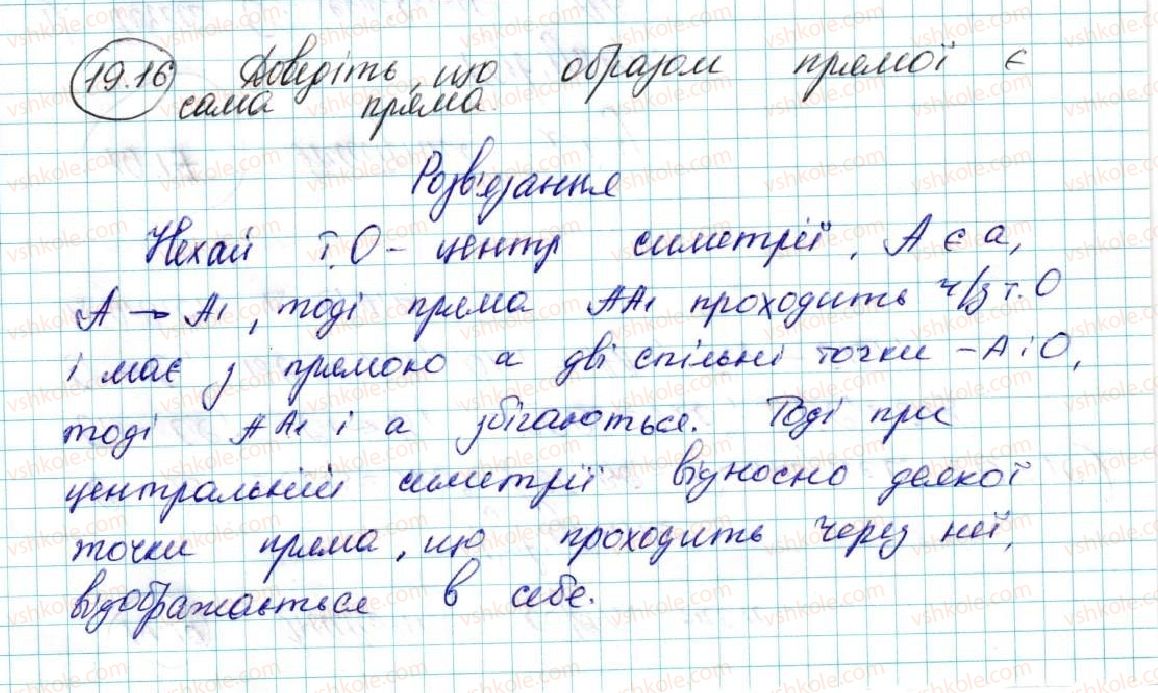 19.16 Доведіть, що образом прямої є
сама пряма.
Розв'язання
Нехай т.О - центр симетрії, A є a,
A → A1, тоді пряма AA1 проходить ч/з т.О
і має з прямою a дві спільні точки - A і O,
тоді AA1 і a збігаються. Тоді при
центральній симетрії відносно деякої
точки пряма, що проходить через неї,
відображається в себе.